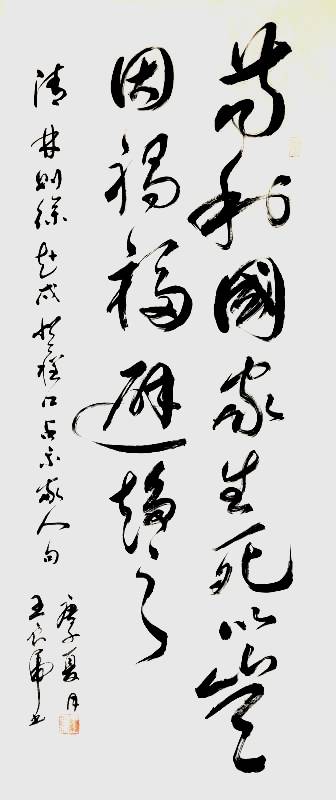 苟利國家生死以豈
因禍福避趨之
清林則徐赴戍登程口占示家人句
庚子夏月
王良虎书